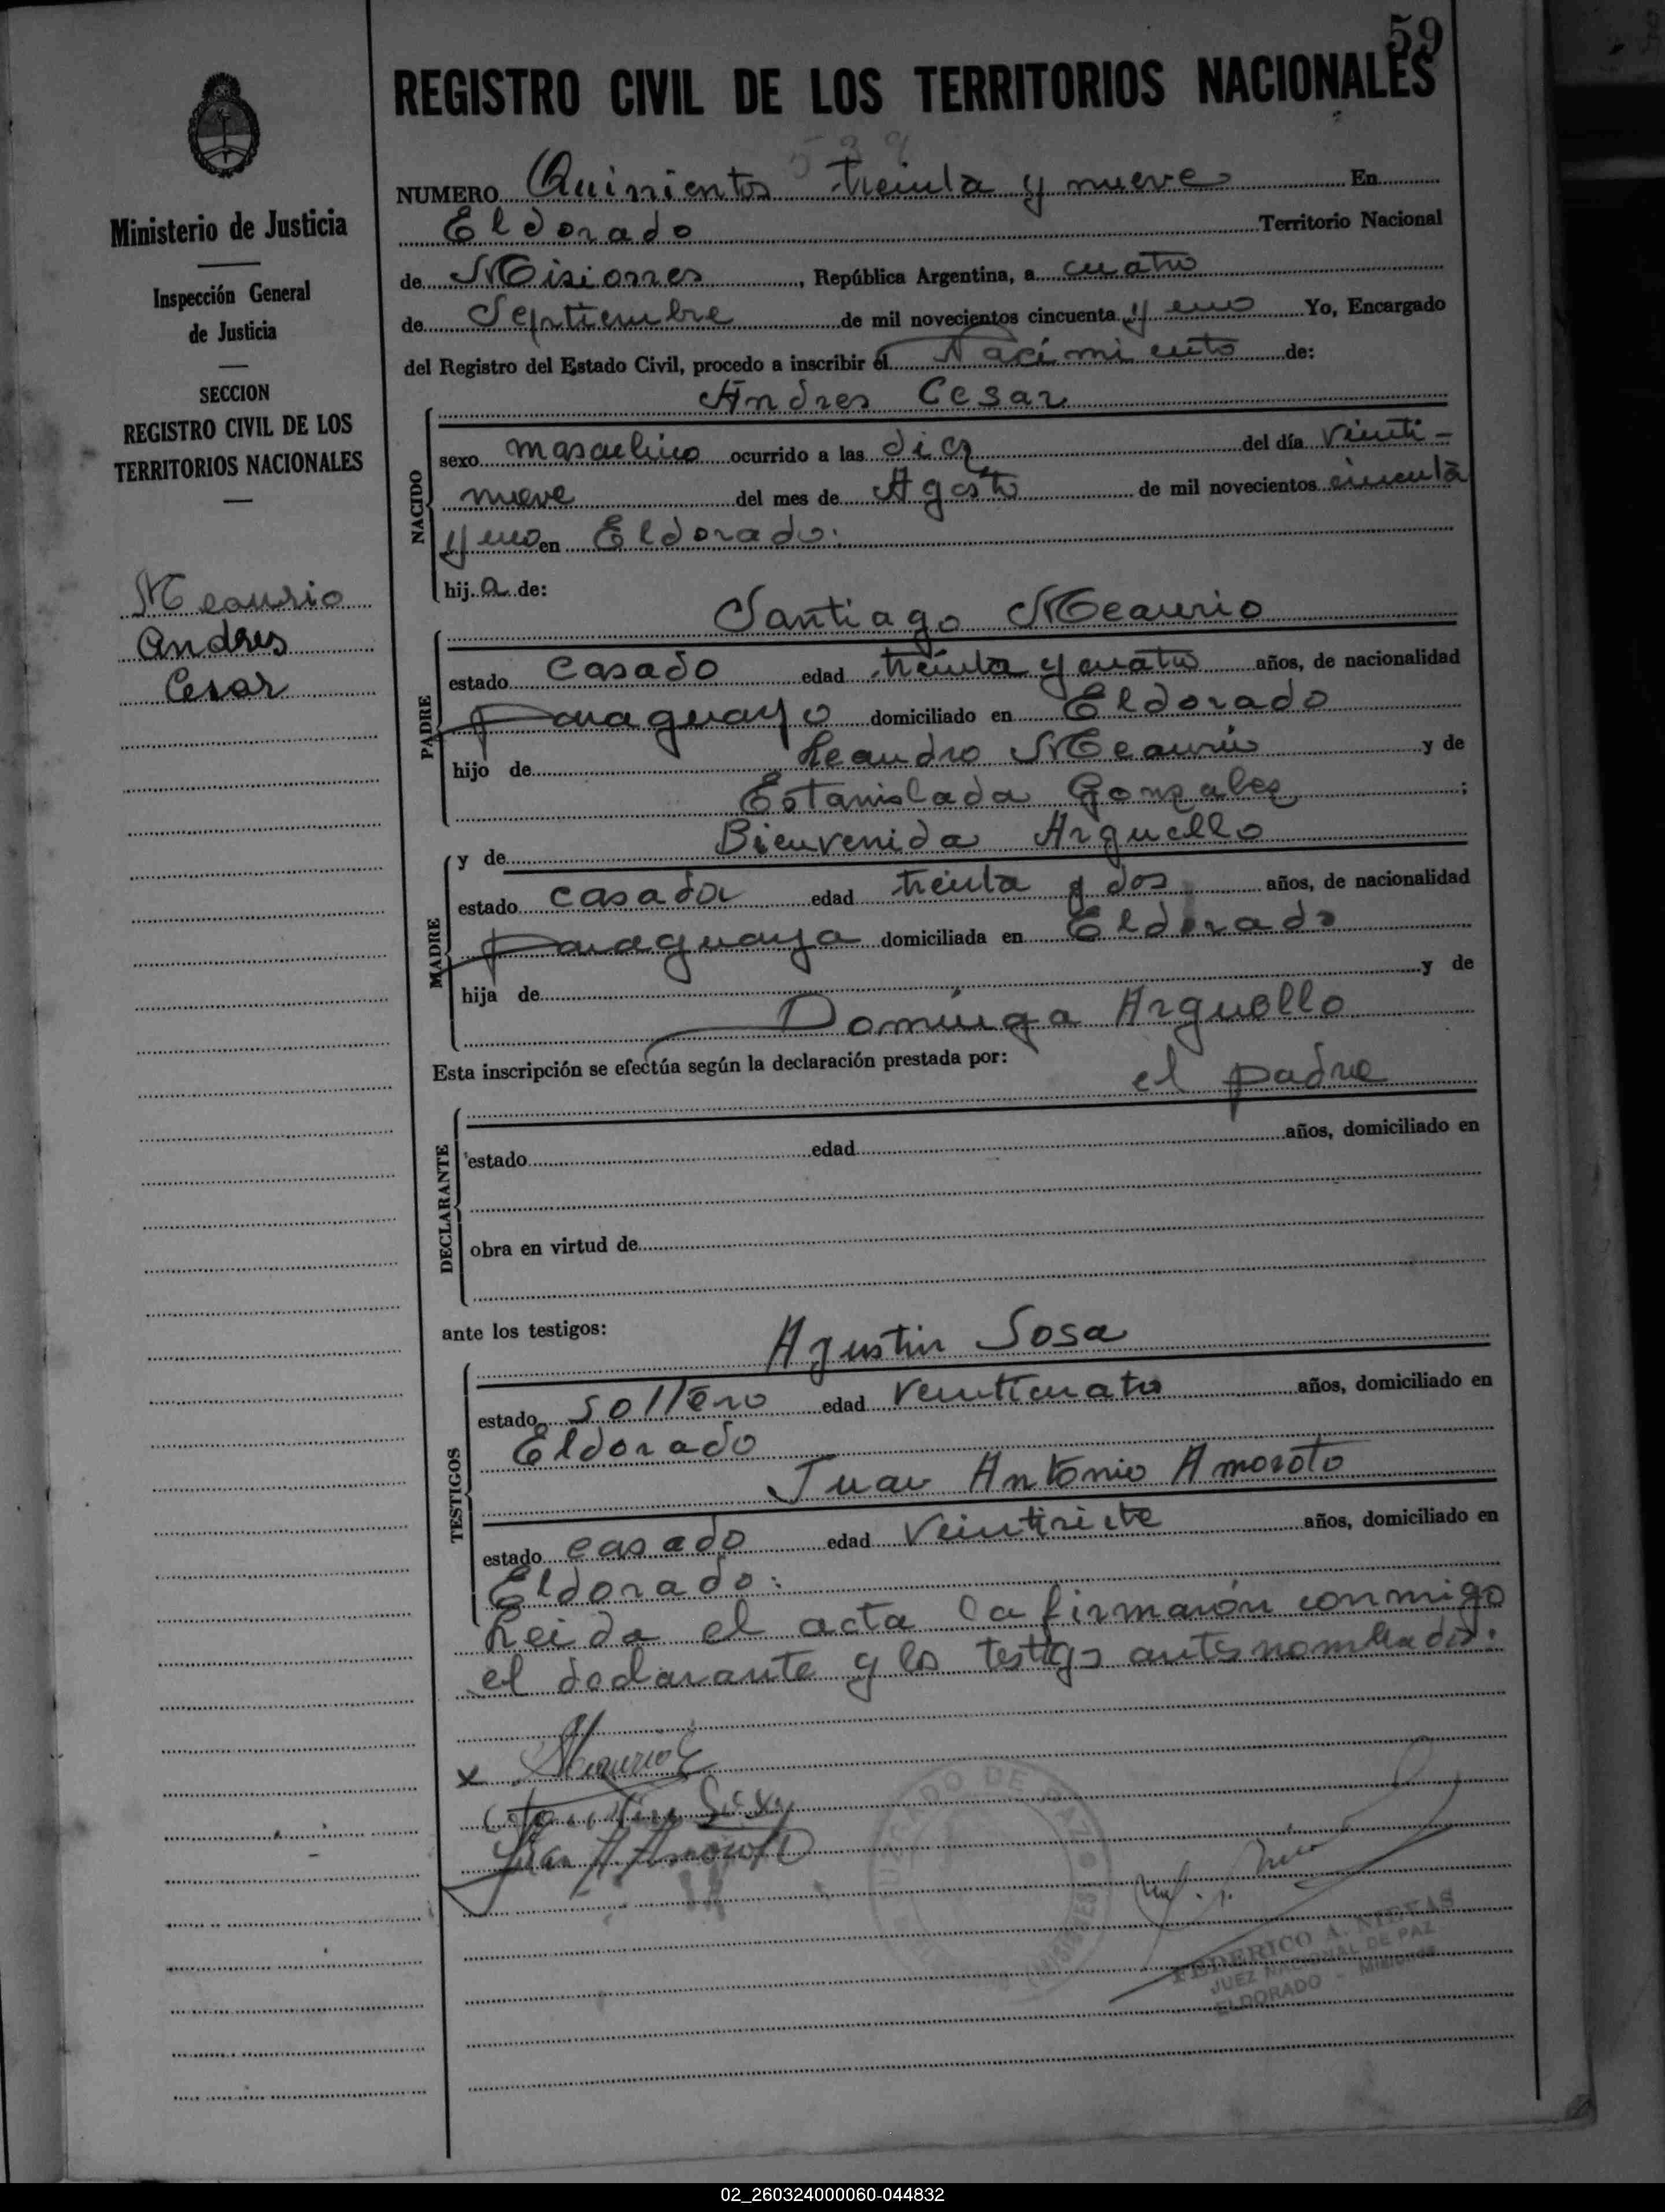 59
REGISTRO CIVIL DE LOS TERRITORIOS NACIONALES
539
NUMERO Quinientos treinta y nueve En
Eldorado Territorio Nacional
de Misiones, República Argentina, a cuatro
de Septiembre de mil novecientos cincuenta y uno Yo, Encargado
del Registro del Estado Civil, procedo a inscribir el Nacimiento de:
Ministerio de Justicia
Inspección General
de Justicia
SECCION
REGISTRO CIVIL DE LOS
TERRITORIOS NACIONALES
Meaurio
Andres
Cesar
NACIDO
Andres Cesar
sexo masculino ocurrido a las diez del día Veinti-
nueve del mes de Agosto de mil novecientos cincuenta
y uno en Eldorado:
hij a de:
PADRE
Santiago Meaurio
estado casado edad treinta y cuatro años, de nacionalidad
paraguayo domiciliado en Eldorado
hijo de Leandro Meaurio y de
Estanislada Gonzalez;
MADRE
y de Bienvenida Arguello
estado casada edad treinta y dos años, de nacionalidad
paraguaya domiciliada en Eldorado
hija de y de
Dominga Arguello
Esta inscripción se efectúa según la declaración prestada por:
DECLARANTE
el padre
estado edad años, domiciliado en
obra en virtud de
ante los testigos:
TESTIGOS
Agustin Sosa
estado soltero edad Veinticuatro años, domiciliado en
Eldorado
Juan Antonio Amoroto
estado casado edad Veintisiete años, domiciliado en
Eldorado:
Leida el acta la firmarón conmigo
el declarante y los testigos antesnombrados:
x Meaurio
Juan A. Amoroto
JUZGADO DE PAZ
MISIONES
FEDERICO A. NIEVAS
JUEZ NACIONAL DE PAZ
ELDORADO - Misiones
02_260324000060-044832